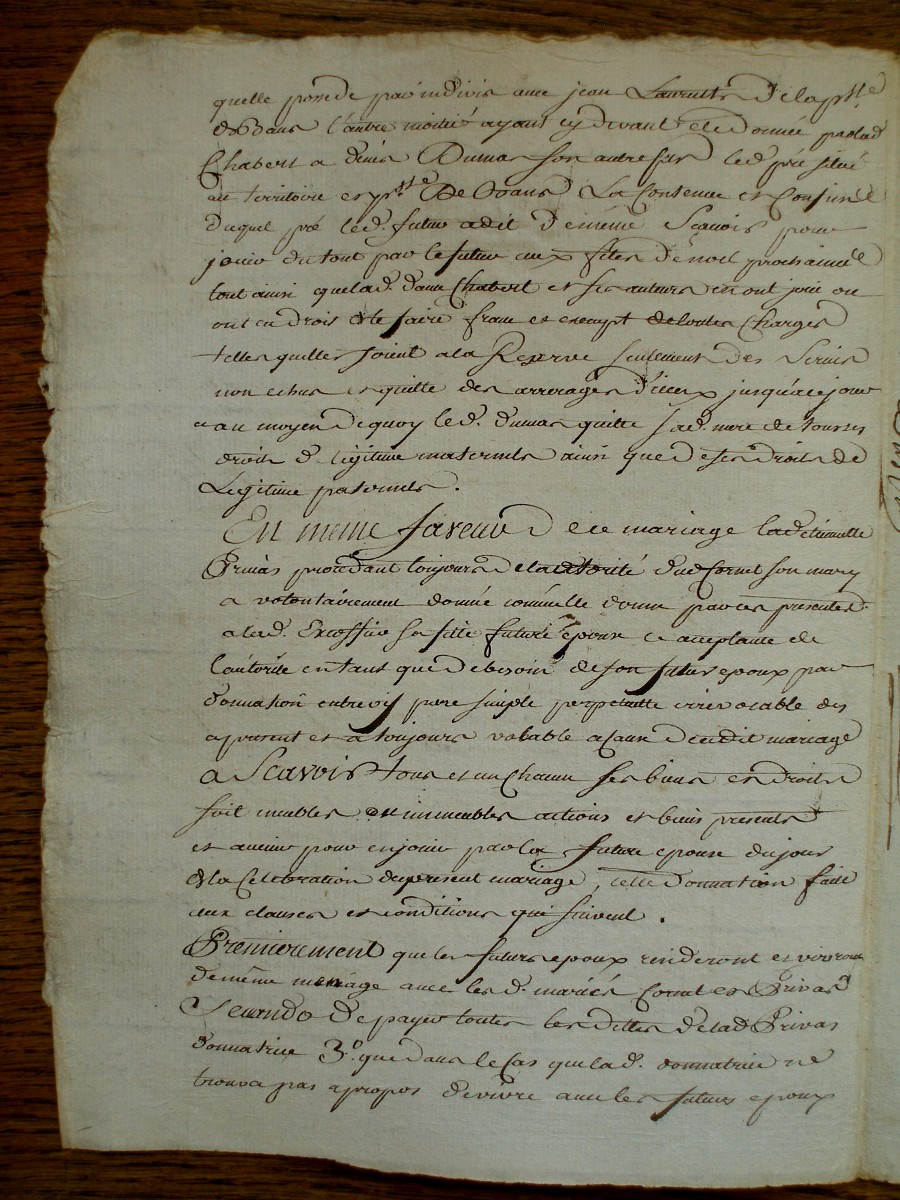 quelle possede par indivis avec jean Laurents de la psse
de Bans l'autre moitié ayant cy devant eté donnée par lad
Chabert a denis Dumas son autre fils led. pré situé
au territoire et psse de Bans La Contenue et Confins
duquel pré led. futur a dit de meme Sçavoir pour
jouir du tout par le futur aux fetes de noel prochaines
tout ainsi que lad. Chabert et ses auteurs en ont joui ou
ont eu droit de le faire franc et exempt de toutes Charges
telles quelles soient a la Reserve seulement des Servis
non echus et quitte des arrerages d'iceux jusqu'a ce jour
au moyen de quoy led. dumas quitte sad. mere de tous ses
droits de legitime maternels ainsi que de ses droits de
Legitime paternels.
En meme faveur de ce mariage lad. etiennette
Privas procedant toujours de l'autorité dud Cornet son mary
a volontairement donné comme elle donne par ces presentes
a lad. sa fille future epouse ce acceptante de
l'autorité en tant que de besoin de son futur epoux par
donnation entre vif pure simple perpetuelle irrevocable des
a present et a toujours valable a Cause dudit mariage
a Scavoir tous et un Chacun ses biens et droits
soit meubles et immeubles actions et biens presents
et avenir pour en jouir par la future epouse du jour
de la Celebration du present mariage, cette donnation faite
aux clauses et conditions qui suivent.
Premierement que les futurs epoux et vivront
de même menage avec les d. mariés Cornet et Privas
Secundo de payer toutes les dettes de lad Privas
donnatrice 3°. que dans le Cas que lad. donnatrice ne
trouva pas apropos de vivre avec les futurs epoux